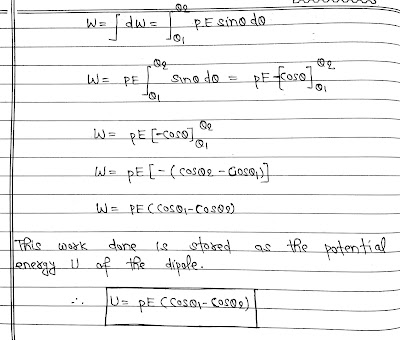 W = ∫ dW = ∫_{θ1}^{θ2} pE sinθ dθ
W = pE ∫_{θ1}^{θ2} sinθ dθ = pE -[cosθ]_{θ1}^{θ2}
W = pE [-cosθ]_{θ1}^{θ2}
W = pE [-(cosθ2 - cosθ1)]
W = pE (cosθ1 - cosθ2)
This work done is stored as the potential
energy U of the dipole.
∴ U = pE (cosθ1 - cosθ2)